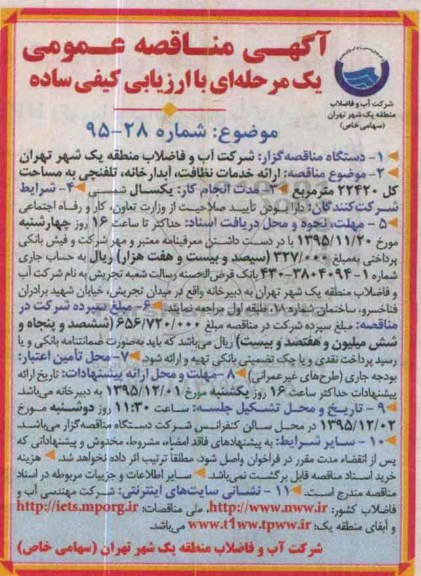 آگهـی منـاقصه عـمومی
یک مرحله‌ای با ارزیابی کیفی ساده
شرکت آب و فاضلاب
منطقه یک شهر تهران
(سهامی خاص)
موضوع: شماره ۲۸-۹۵
۱- دستگاه مناقصه‌گزار: شرکت آب و فاضلاب منطقه یک شهر تهران
۲- موضوع مناقصه: ارائه خدمات نظافت، آبدارخانه، تلفنچی به مساحت
کل ۲۲۴۲۰ مترمربع ۳- مدت انجام کار: یکسال شمسی ۴- شرایط
شرکت‌کنندگان: دارا بودن تأیید صلاحیت از وزارت تعاون، کار و رفاه اجتماعی
۵- مهلت، نحوه و محل دریافت اسناد: حداکثر تا ساعت ۱۶ روز چهارشنبه
مورخ ۱۳۹۵/۱۱/۲۰ با در دست داشتن معرفینامه معتبر و مهر شرکت و فیش بانکی
پرداختی به‌مبلغ ۳۲۷/۰۰۰ (سیصد و بیست و هفت هزار) ریال به حساب جاری
شماره ۱-۳۸۰۴۰۹۴-۴۳۰ بانک قرض‌الحسنه رسالت شعبه تجریش به نام شرکت آب
و فاضلاب منطقه یک شهر تهران به دبیرخانه واقع در میدان تجریش، خیابان شهید برادران
فناخسرو، ساختمان شماره ۷، طبقه اول مراجعه نمایند ۶- مبلغ سپرده شرکت در
مناقصه: مبلغ سپرده شرکت در مناقصه مبلغ ۶۵۶/۷۲۰/۰۰۰ (ششصد و پنجاه و
شش میلیون و هفتصد و بیست) ریال می‌باشد که باید به‌صورت ضمانتنامه بانکی و یا
رسید پرداخت نقدی و یا چک تضمینی بانکی تهیه و ارائه شود. ۷- محل تأمین اعتبار:
بودجه جاری (طرح‌های غیرعمرانی) ۸- مهلت و محل ارائه پیشنهادات: تاریخ ارائه
پیشنهادات حداکثر ساعت ۱۶ روز یکشنبه مورخ ۱۳۹۵/۱۲/۰۱ به دبیرخانه می‌باشد.
۹- تاریخ و محل تشکیل جلسه: ساعت ۱۱:۳۰ روز دوشنبه مورخ
۱۳۹۵/۱۲/۰۲ در محل سالن کنفرانس شرکت دستگاه مناقصه‌گزار می‌باشد.
۱۰- سایر شرایط: به پیشنهادهای فاقد امضاء، مشروط، مخدوش و پیشنهاداتی که
پس از انقضاء مدت مقرر در فراخوان واصل شود، مطلقاً ترتیب اثر داده نخواهد شد. هزینه
خرید اسناد مناقصه قابل برگشت نمی‌باشد. سایر اطلاعات و جزییات مربوطه در اسناد
مناقصه مندرج است. ۱۱- نشانی سایت‌های اینترنتی: شرکت مهندسی آب و
فاضلاب کشور: http://www.nww.ir، ملی مناقصات: http://iets.mporg.ir
و آبفای منطقه یک: www.t1ww.tpww.ir می‌باشد.
شرکت آب و فاضلاب منطقه یک شهر تهران (سهامی خاص)